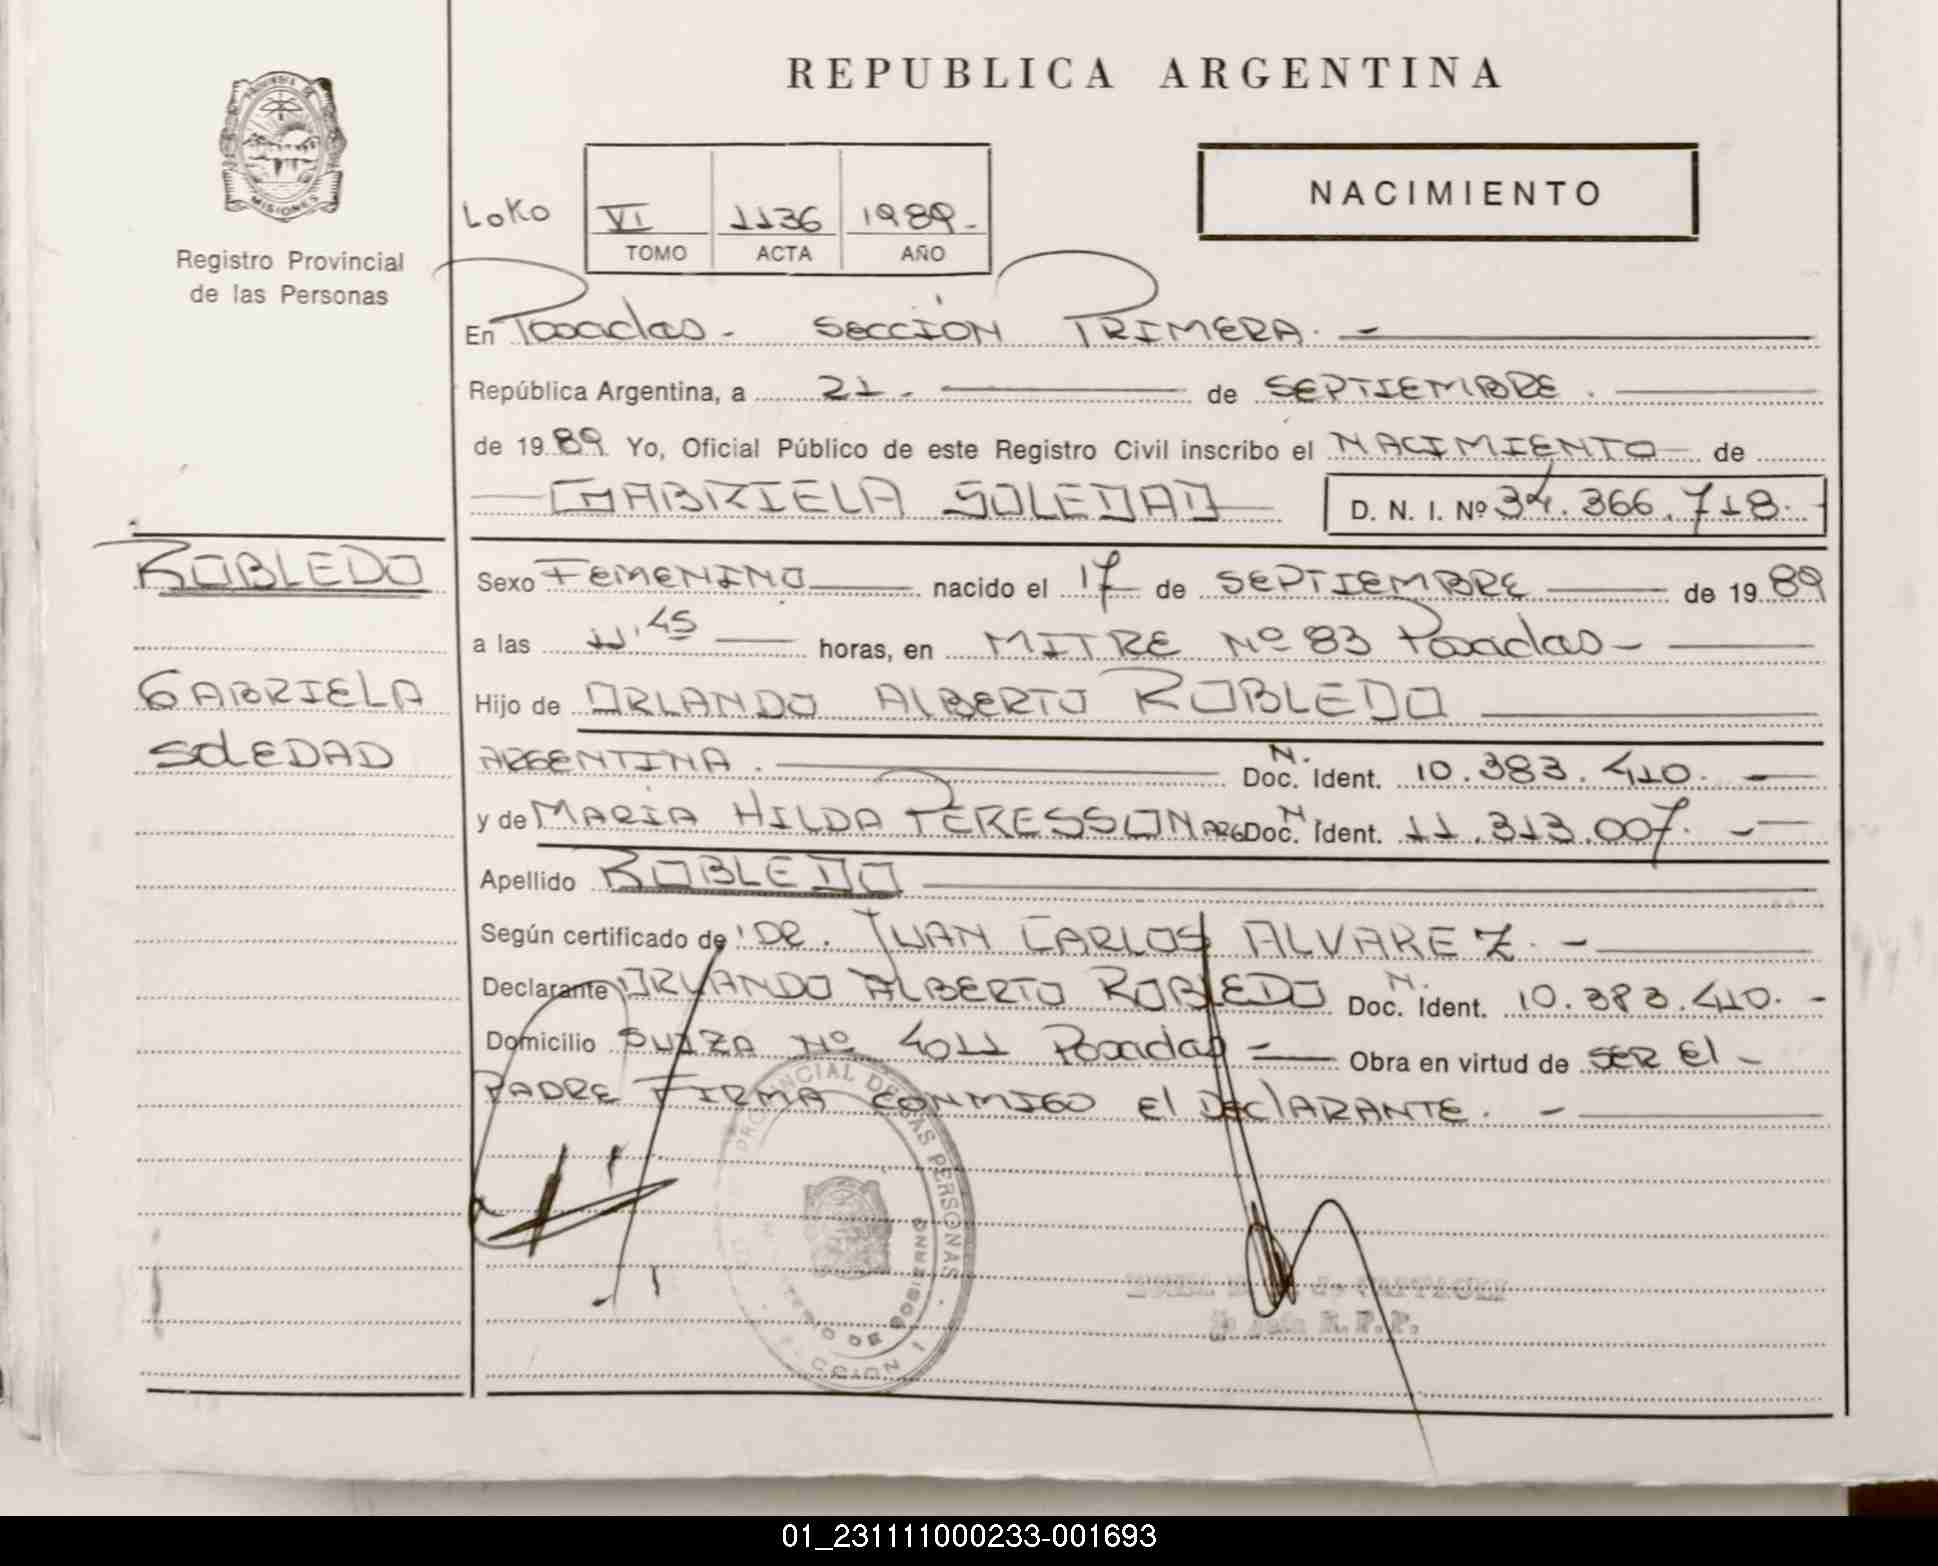 REPUBLICA ARGENTINA
PROVINCIA DE
MISIONES
Registro Provincial
de las Personas
NACIMIENTO
LoKo
VI 1136 1989.-
TOMO ACTA AÑO
En Posadas - SECCIÓN PRIMERA. -
República Argentina, a 21. - de SEPTIEMBRE.
de 1989 Yo, Oficial Público de este Registro Civil inscribo el NACIMIENTO de
GABRIELA SOLEDAD D. N. I. Nº 34.366.718.
ROBLEDO
GABRIELA
SOLEDAD
Sexo FEMENINO nacido el 17 de SEPTIEMBRE de 1989
a las 11'45 horas, en MITRE Nº 83 Posadas -
Hijo de ORLANDO ALBERTO ROBLEDO
ARGENTINA. N. Doc. Ident. 10.383.410. -
y de MARÍA HILDA PERESSON ARG Doc. N. Ident. 11.313.007. -
Apellido ROBLEDO
Según certificado de DR. JUAN CARLOS ALVAREZ. -
Declarante ORLANDO ALBERTO ROBLEDO N. Doc. Ident. 10.383.410. -
Domicilio SUIZA Nº 4011 Posadas - Obra en virtud de SER El -
PADRE FIRMA CONMIGO El DEClARANTE. -
PROVINCIAL DE LAS PERSONAS
DE GOBIERNO
01_231111000233-001693